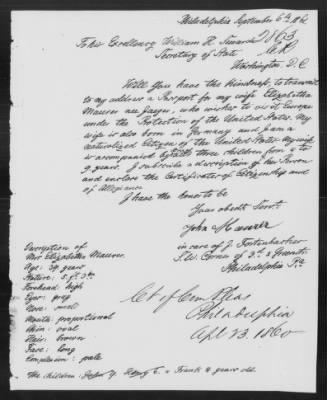 Philadelphia September 6th 1862
To his Excellency William H. Seward
Secretary of State
Washington, D.C.
Will you have the kindness, to transmit
to my address a Pasport for my wife Elizabetha
Maurer who wishes to visit Europe
under the Protection of the United States. My
wife is also born in Germany and I am a
naturalized Citizen of the United States. My wife
is acompanied by three children from 4 to
9 years. I subscribe a description of her Person
and enclose the Certificates of Citizenship and
of Allegiance
I have the honor to be
Your obedt Servt.
John Maurer
in care of J.
S.W. Corner of 3d &
Philadelphia Pa.
Description of
Mrs. Elizabetha Maurer.
Age: 39 years
Stature: 5 ft 3
Forehead: high
Eyes: grey
Nose: med
Mouth: proportional
Chin: oval
Hair: brown
Face: long
Complexion: pale
Ct of Com Pleas
Philadelphia
Apl 23. 1860
The children: 9. Henry 6. & Frank 4 years old.